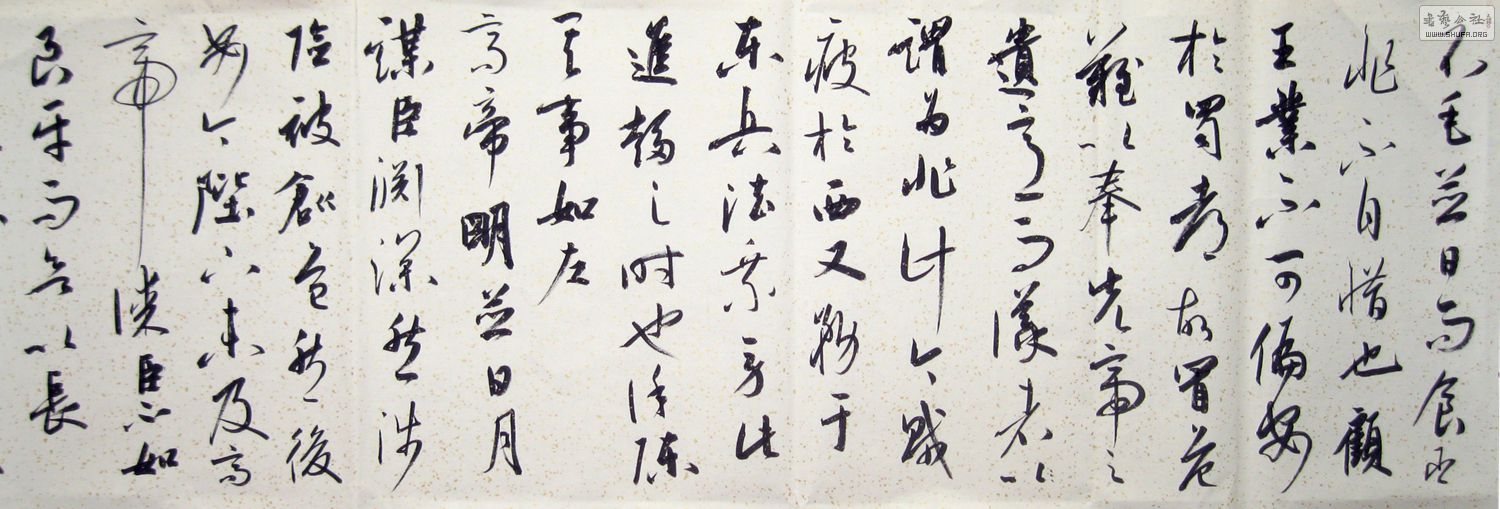 不毛並日而食臣
非不自惜也顧
王業不可偏安
於蜀都故冒危
難以奉先帝之
遺意而議者以
謂為非計今賊
疲於西又務于
東兵法乘勞此
進趨之時也謹陳
其事如左
高帝明並日月
謀臣淵深然涉
險被創危然後
安今陛下未及高
帝謀臣不如
良平而欲以長
WWW.SHUFA.ORG